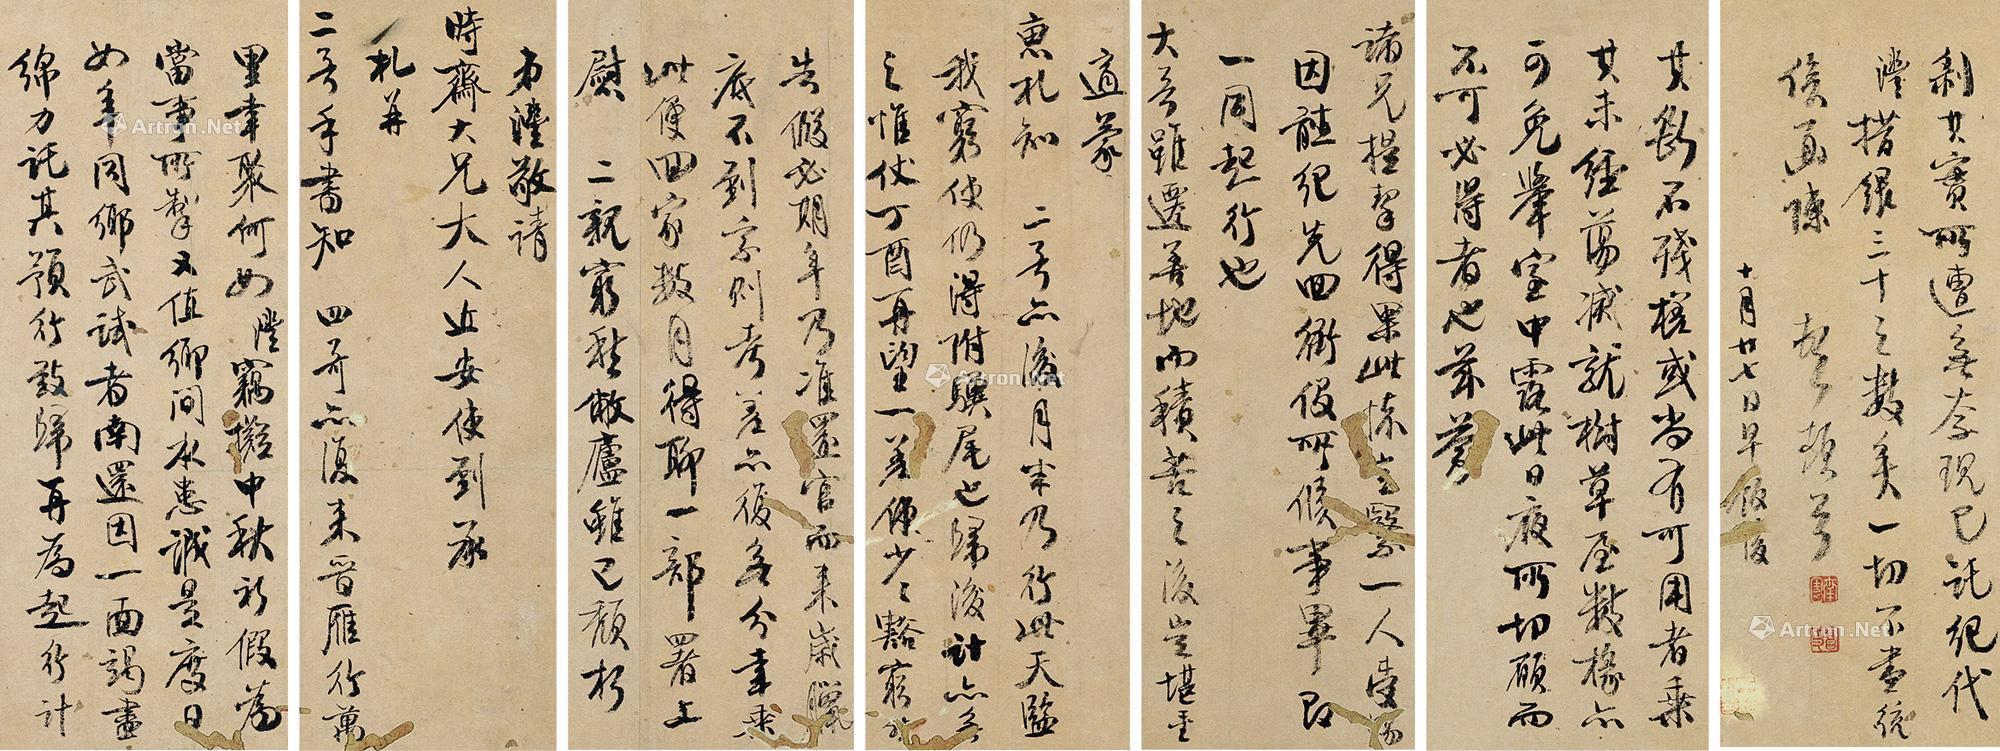 剩其實所遭無奈現已託紀代
澧措銀三十之數矣一切不盡統
俟面陳 頓首
十月廿七日早飯後
其斷不殘 或尚有可用者乘
其未經蕩滅就樹草屋數椽亦
可免舉室中露此日夜所切願而
不可必得者也茲蒙
諸兄提挈得果此懷 一人
因 紀先回 所候事畢即
一同起行也
大哥雖遷善地而積苦之後豈堪重
適蒙
惠札知 二哥亦後月半乃行此天監
我窮使仍得附驥尾也歸後計亦無
之惟仗丁酉再望一差俾少少豁窮
告假必明年乃准置官而来歲臘
底不到京則考差亦後多分幸乘
此便回家數月得聊一部署上
慰 二親窮愁敝廬雖已頹朽
弟澧敬請
時齋大兄大人近安使到承
札并
二哥手書知 四哥亦復来晉雁行萬
里幸聚何如 澧竊擬中秋祈假為
當事所掣又值鄉間水患誠是度日
如年同鄉武試者南還因一面竭盡
綿力託其預行致歸再為起行計